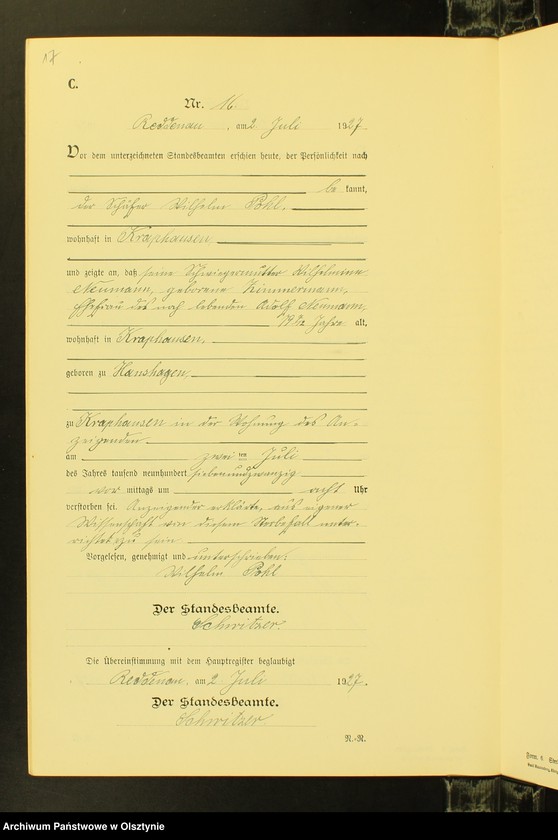 17
C.
Nr. 16
Reddenau, am 2. Juli 1927.
Vor dem unterzeichneten Standesbeamten erschien heute, der Persönlichkeit nach
be kannt,
der Schäfer Wilhelm Pohl,
wohnhaft in Kraphausen
und zeigte an, daß seine Schwiegermutter Wilhelmine
Neumann, geborene Zimmermann,
Ehefrau des noch lebenden Adolf Neumann,
79 1/2 Jahre alt,
wohnhaft in Kraphausen,
geboren zu Hanshagen,
zu Kraphausen in der Wohnung des An-
zeigenden
am zwei ten Juli
des Jahres tausend neunhundert siebenundzwanzig
vor mittags um acht Uhr
verstorben sei. Anzeigender erklärte, aus eigener
Wissenschaft von diesem Sterbefall unter-
richtet zu sein
Vorgelesen, genehmigt und unterschrieben.
Wilhelm Pohl
Der Standesbeamte.
Schwitzer.
Die Übereinstimmung mit dem Hauptregister beglaubigt
Reddenau, am 2. Juli 1927.
Der Standesbeamte.
Schwitzer
R.-R.
Archiwum Państwowe w Olsztynie